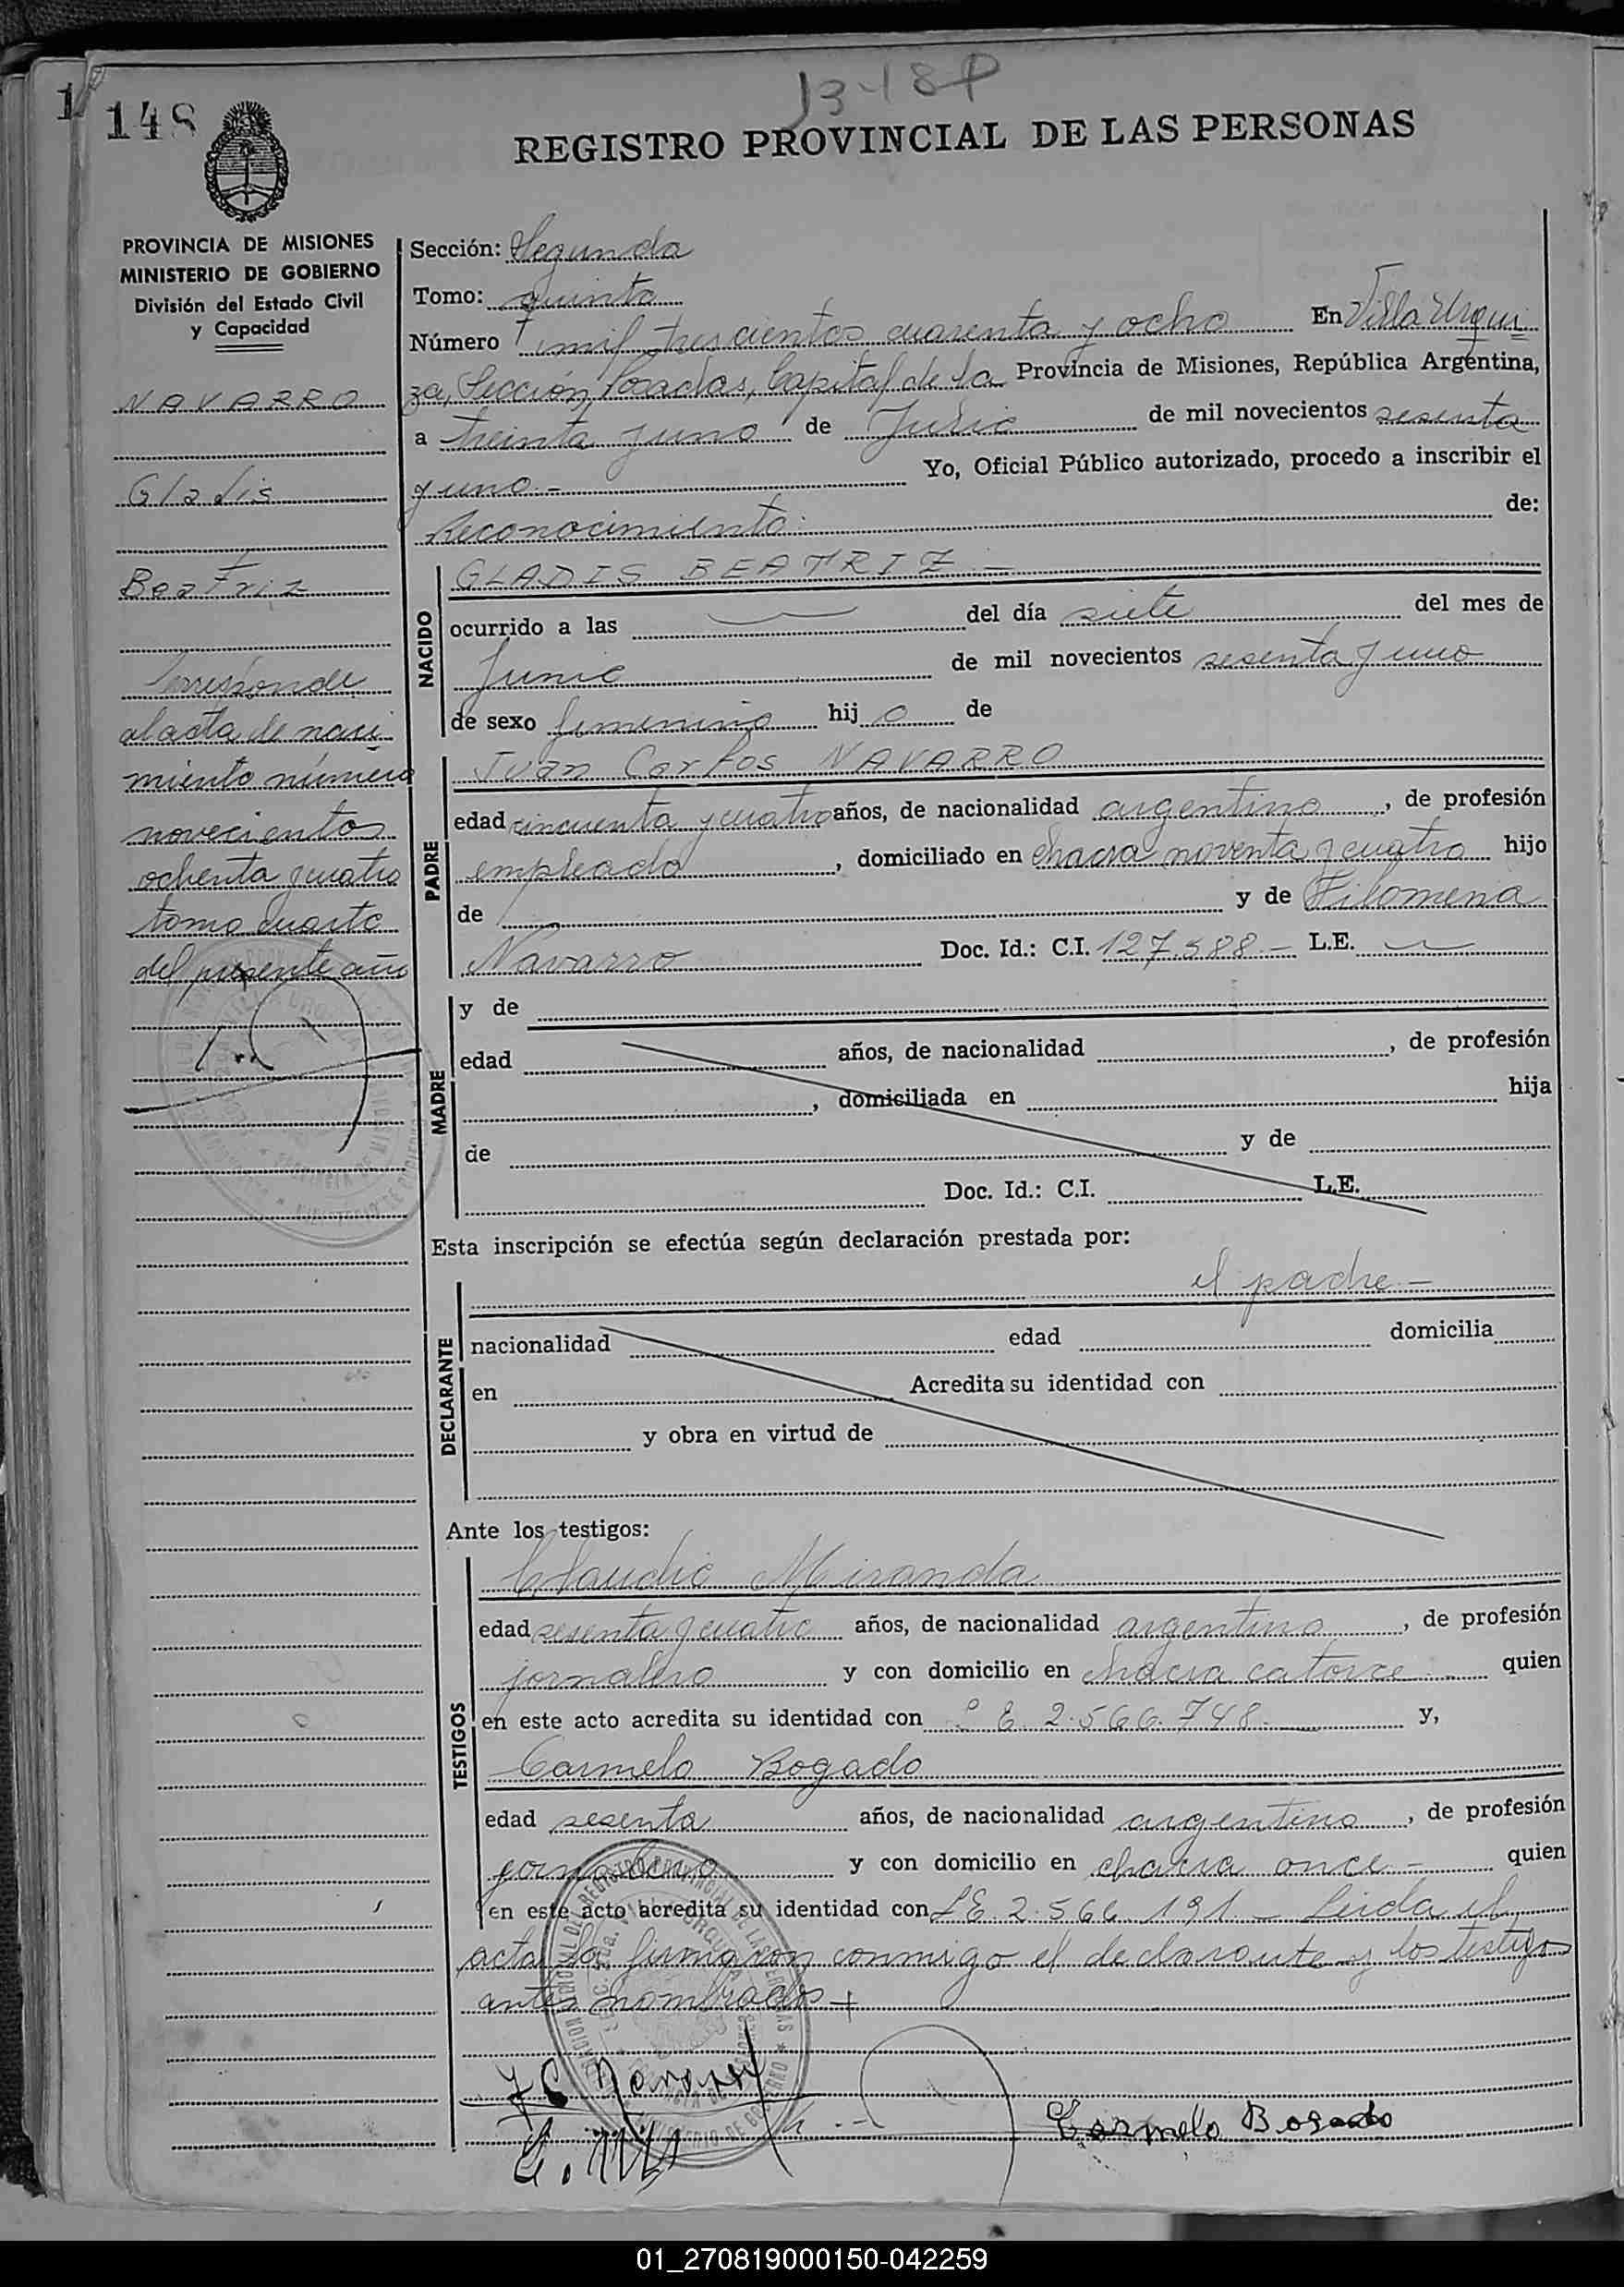 1
148
13-18P
REGISTRO PROVINCIAL DE LAS PERSONAS
PROVINCIA DE MISIONES
MINISTERIO DE GOBIERNO
División del Estado Civil
y Capacidad
NAVARRO
Gladis
Beatriz
Corresponde
al acta de naci
miento número
novecientos
ochenta y cuatro
tomo cuarto
del presente año
Sección: Segunda
Tomo: quinto
Número mil trescientos cuarenta y ocho En Villa Urqui
za, Sección Posadas, Capital de la Provincia de Misiones, República Argentina,
a treinta y uno de Julio de mil novecientos sesenta
y uno.- Yo, Oficial Público autorizado, procedo a inscribir el
Reconocimiento. de:
NACIDO
GLADIS BEATRIZ.-
ocurrido a las del día siete del mes de
Junio de mil novecientos sesenta y uno
de sexo femenino hij o de
PADRE
Juan Carlos NAVARRO
edad cincuenta y cuatro años, de nacionalidad argentino, de profesión
empleado, domiciliado en chacra noventa y cuatro hijo
de y de Filomena
Navarro Doc. Id.: C.I. 127.588.- L.E.
MADRE
y de
edad años, de nacionalidad , de profesión
, domiciliada en hija
de y de
Doc. Id.: C.I. L.E.
Esta inscripción se efectúa según declaración prestada por:
DECLARANTE
el padre.-
nacionalidad edad domicilia
en Acredita su identidad con
y obra en virtud de
Ante los testigos:
TESTIGOS
Claudio Miranda
edad sesenta y cuatro años, de nacionalidad argentino, de profesión
jornalero y con domicilio en chacra catorce quien
en este acto acredita su identidad con L E 2.566.748 y,
Carmelo Bogado
edad sesenta años, de nacionalidad argentino, de profesión
jornalero y con domicilio en chacra once.- quien
en este acto acredita su identidad con LE. 2.566.191.- Leida el
acta la firman conmigo el declarante y los testigos
antes nombrados.+
J C Navarro
C. M
Carmelo Bogado
01_270819000150-042259